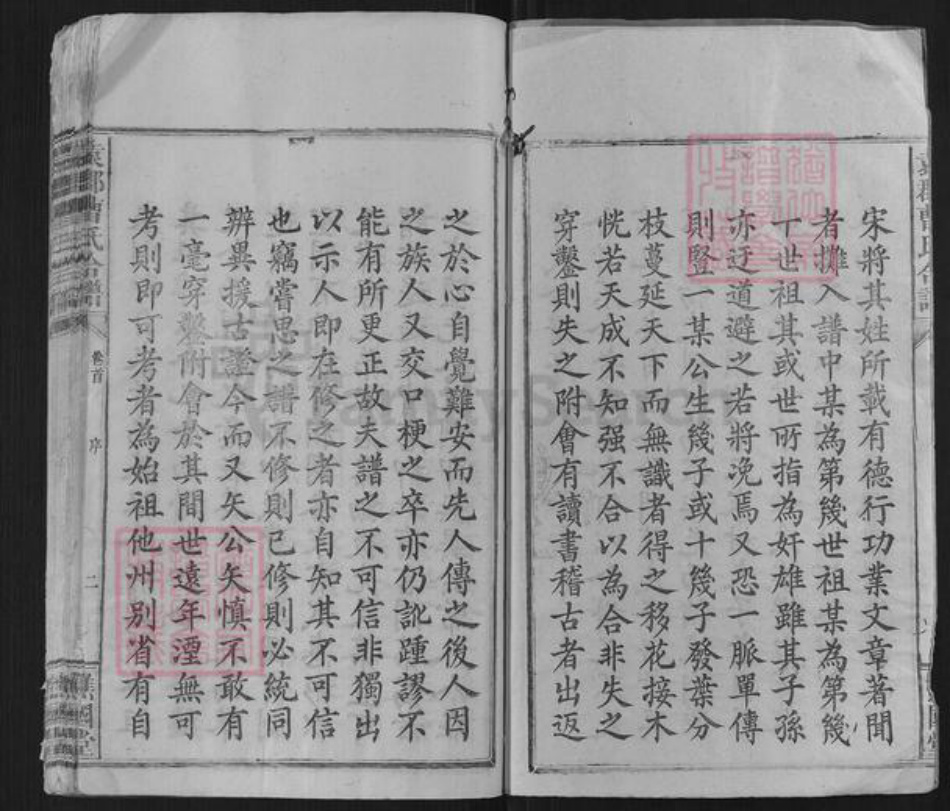 宋將其姓所載有德行功業文章著聞
者攤入譜中某為第幾世祖某為第幾
十世祖其或世所指為奸雄雖其子孫
亦迂道避之若將浼焉又恐一脈單傳
則豎一某公生幾子或十幾子發葉分
枝蔓延天下而無識者得之移花接木
恍若天成不知强不合以為合非失之
穿鑿則失之附會有讀書稽古者出返
之於心自覺難安而先人傳之後人因
之族人又交口梗之卒亦仍訛踵謬不
能有所更正故夫譜之不可信非獨出
以示人即在修之者亦自知其不可信
也竊嘗思之譜不修則已修則必統同
辨異援古證今而又矢公矢慎不敢有
一毫穿鑿附會於其間世遠年湮無可
考則即可考者為始祖他州別省有自
袁郡曹氏合譜
卷首
序
二